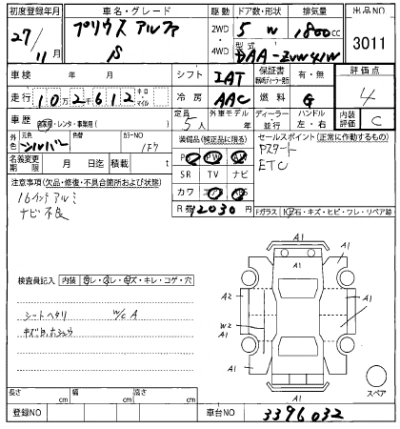 初度登録年月 車名・グレード 駆動 ドア数・形状 排気量 出品NO
27/11月 プリウス アルファ S 2WD 4WD 5 W 1800cc 3011
型式 DAA-ZVW41W
車検 年 月 シフト IAT 保証書 有・無 評価点
走行 102612 キロ・マイル 冷房 AAC 燃料 G 4
車歴 レンタ・事業用 定員 5人 外車モデル 年 ディーラー 並行 ハンドル 左・右 内装評価 C
外色 元色 シルバー 色替 カラーNO 1F7
名義変更期限 月 日迄 積載 t
装備品(純正品に限る)
PS PW
SR TV ナビ
カワ
R券 12030円
セールスポイント(正常に作動するもの)
Pスタート
ETC
注意事項(欠品・修復・不具合箇所および状態)
16インチアルミ
ナビ不良
Fガラス 石・キズ・ヒビ・ワレ・リペア跡
検査員記入 内装 キレ・コゲ・穴
シートヘタリ W/C A
A1
A1
A2
A1
W2
A1
A1
A1
スペア
長さ cm 幅 cm 高さ cm
登録NO 車台NO 3396032